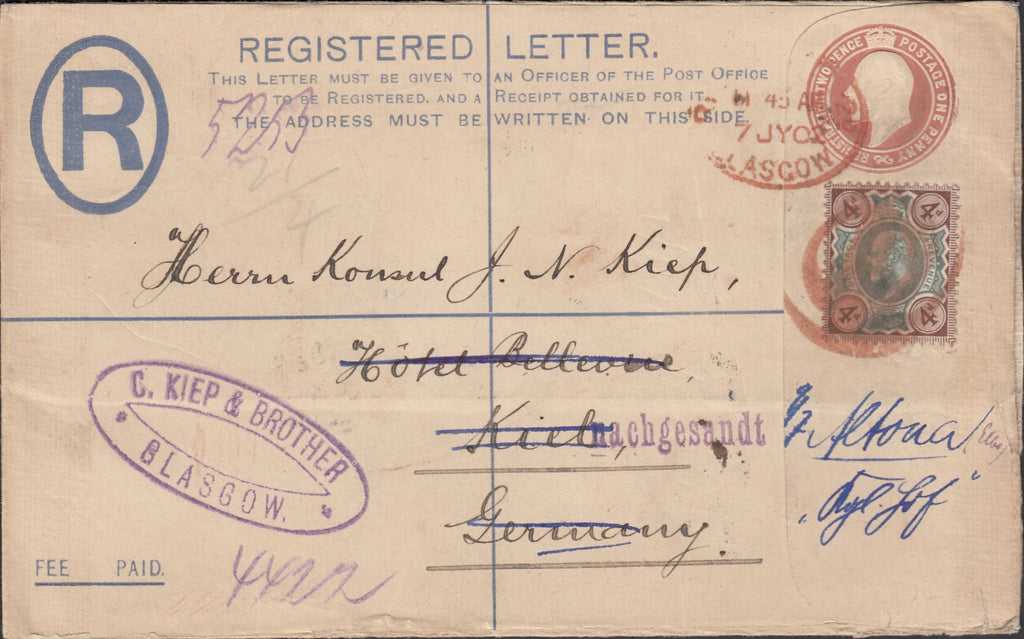 REGISTERED LETTER.
THIS LETTER MUST BE GIVEN TO AN OFFICER OF THE POST OFFICE
TO BE REGISTERED, AND A RECEIPT OBTAINED FOR IT.
THE ADDRESS MUST BE WRITTEN ON THIS SIDE.
R
REGISTRATION TWO PENCE POSTAGE ONE PENNY
45 AM
7 JY 02
GLASGOW
4D 4D
4D 4D
Herrn Konsul J. N. Kiep,
Hôtel Bellevue,
Kiel,
nachgesandt
Germany.
Altona
"Kgl. Hof"
C. KIEP & BROTHER
GLASGOW.
FEE PAID.
4422